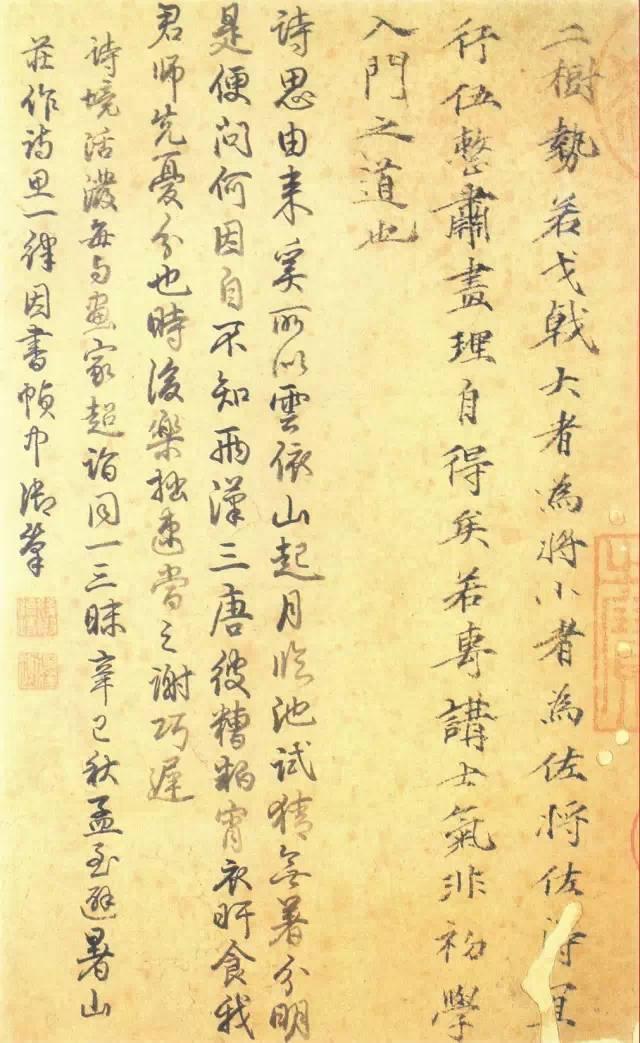 二樹勢若戈戟大者為將小者為佐將佐得宜
行伍整肅畫理自得矣若專講士氣非初學
入門之道也
詩思由来奚所以雲依山起月临池試猜無著分明
是便问何因自不知兩漢三唐彼糟粕宵衣旰食我
君师先憂分也時後樂拙速當之谢巧遲
詩境活潑每与畫家超詣同一三昧辛巳秋孟至避暑山
莊作詩思一律因書幀中御筆